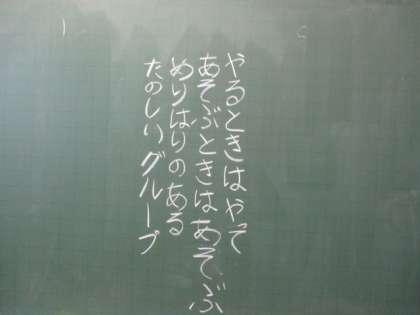 やるときはやって
あそぶときはあそぶ
めりはりのある
たのしいグループ